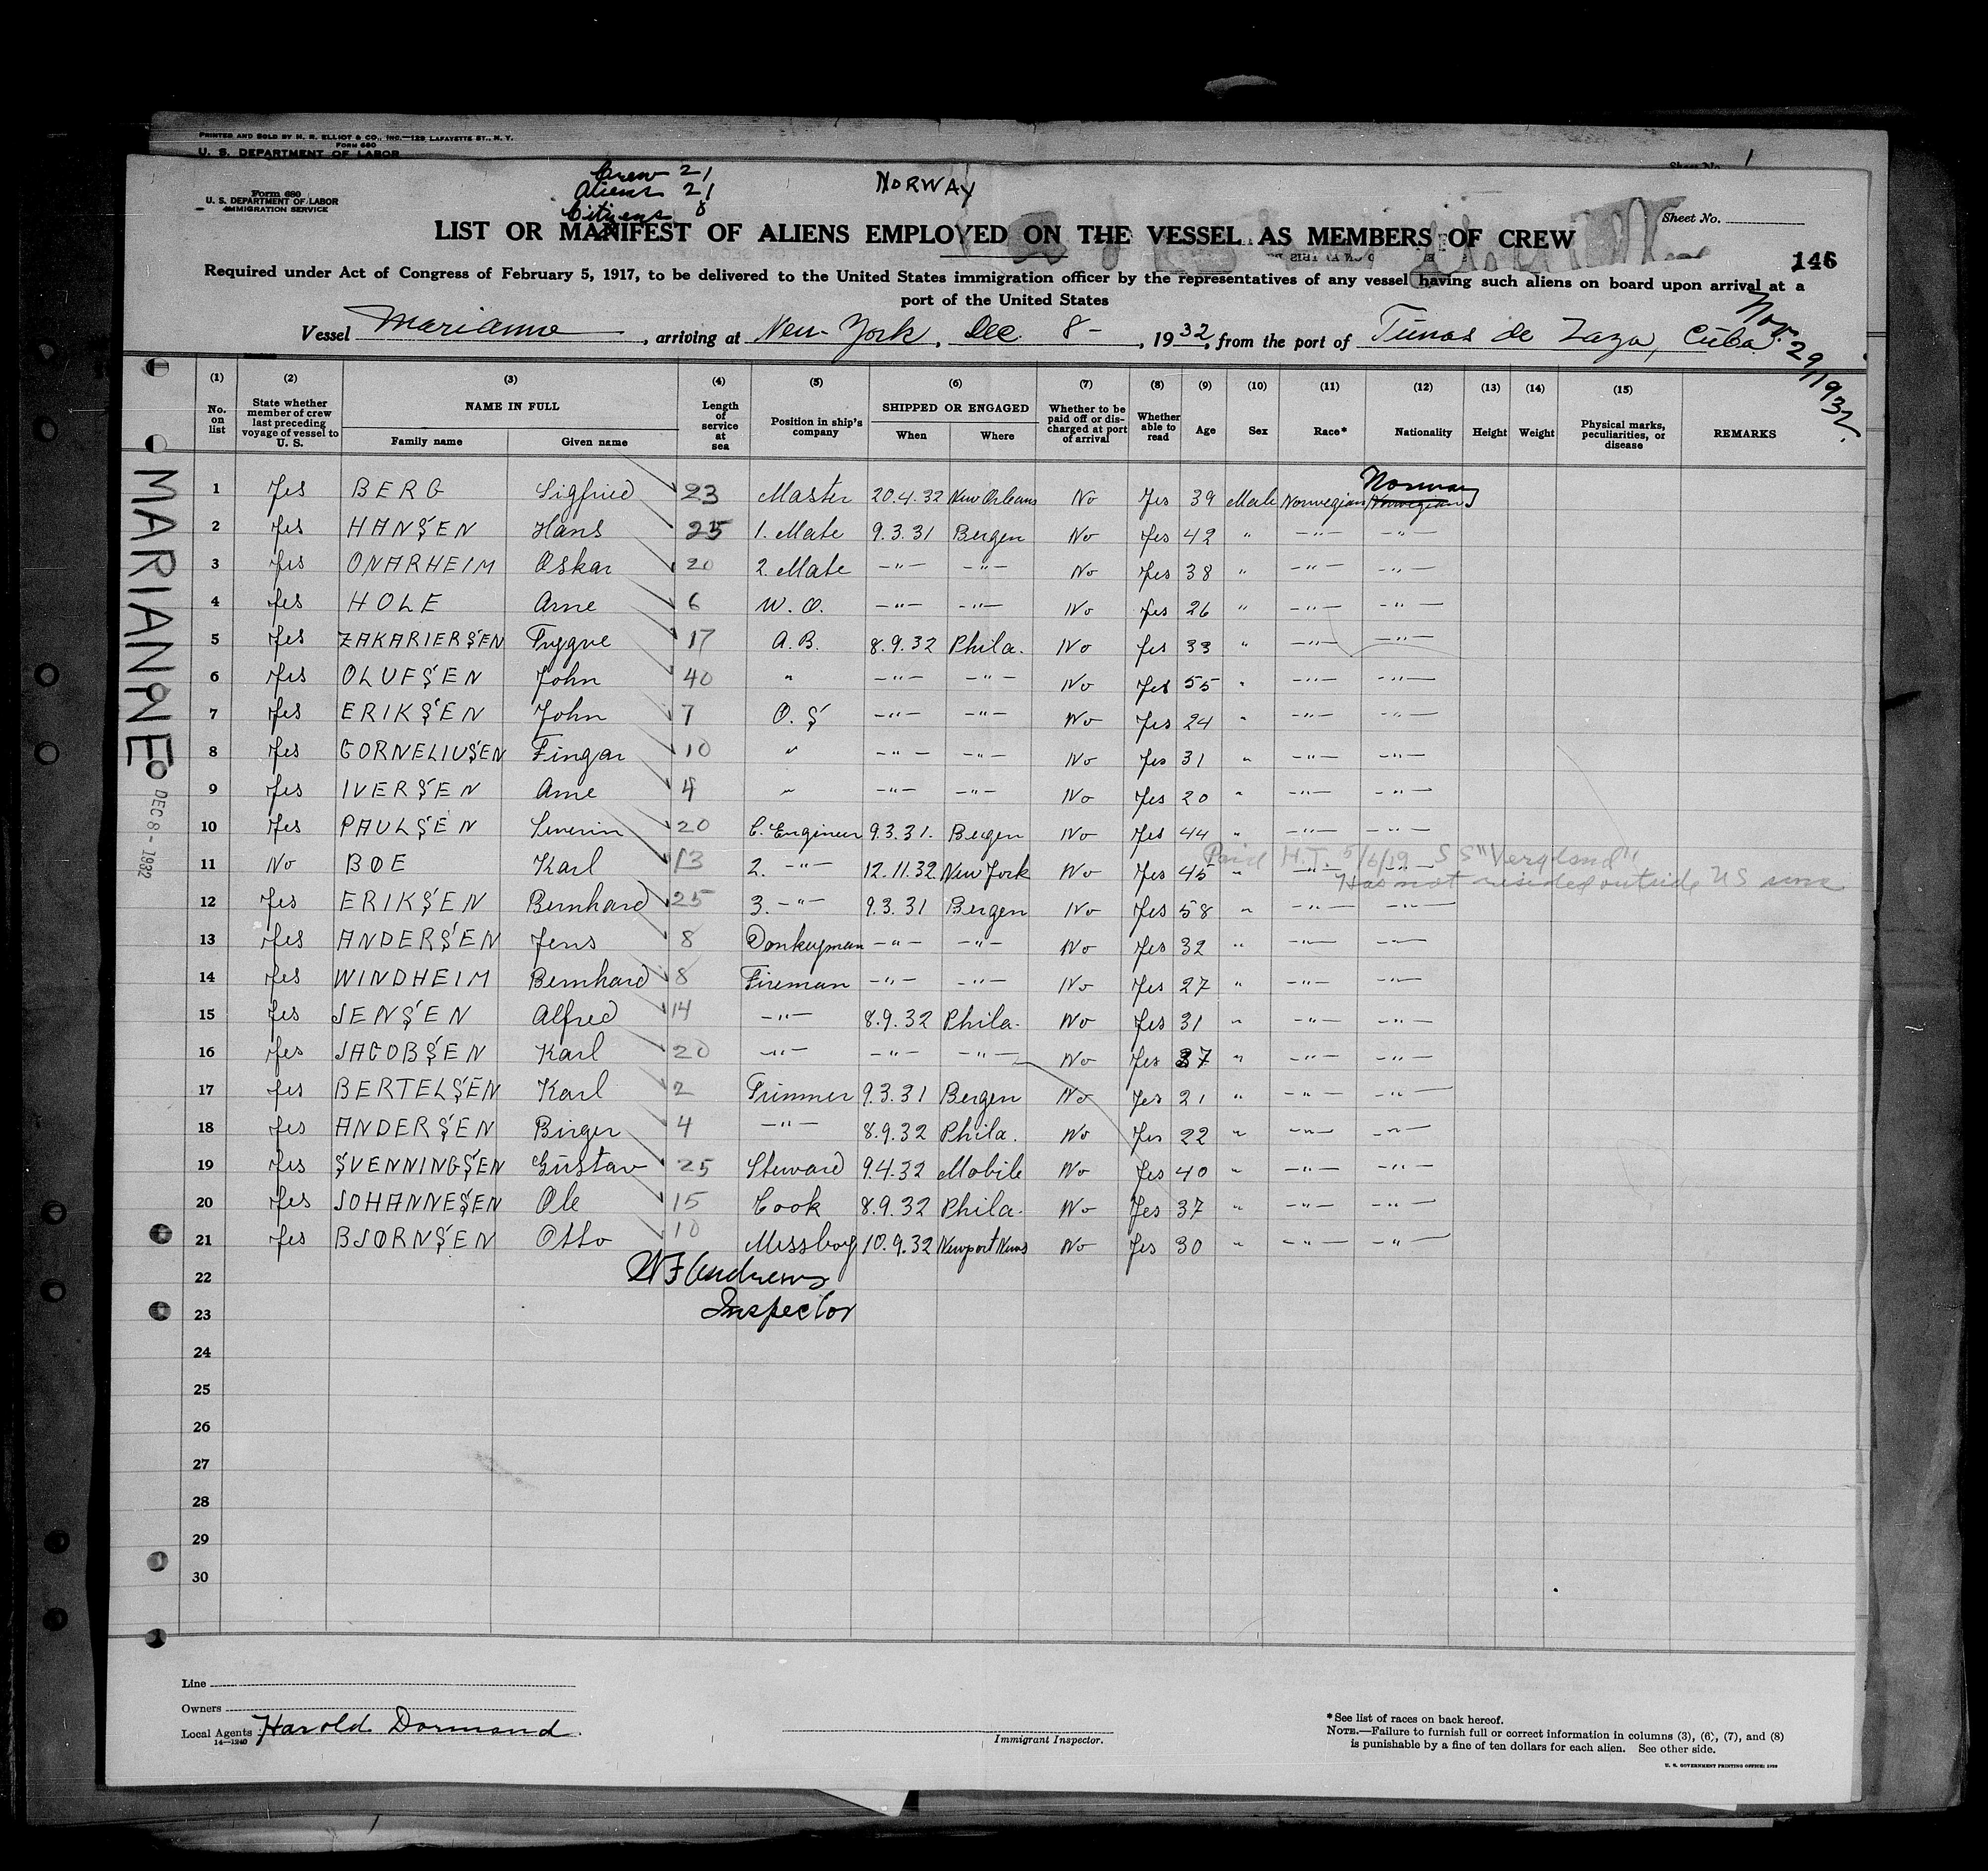 PRINTED AND SOLD BY M. R. ELLIOT & CO., INC.—129 LAFAYETTE ST., N. Y.
FORM 680
U. S. DEPARTMENT OF LABOR
Sheet No. 1
Crew 21
Aliens 21
Citizens 0
NORWAY
Form 680
U. S. DEPARTMENT OF LABOR
IMMIGRATION SERVICE
Sheet No.
LIST OR MANIFEST OF ALIENS EMPLOYED ON THE VESSEL AS MEMBERS OF CREW
146
Required under Act of Congress of February 5, 1917, to be delivered to the United States immigration officer by the representatives of any vessel having such aliens on board upon arrival at a
port of the United States
Vessel Marianne, arriving at New York, Dec. 8-, 1932, from the port of Tunas de Zaza, Cuba. Nov. 29, 1932.
(1) (2) (3) (4) (5) (6) (7) (8) (9) (10) (11) (12) (13) (14) (15)
No. on list State whether member of crew last preceding voyage of vessel to U. S. NAME IN FULL Family name Given name Length of service at sea Position in ship's company SHIPPED OR ENGAGED When Where Whether to be paid off or discharged at port of arrival Whether able to read Age Sex Race* Nationality Height Weight Physical marks, peculiarities, or disease REMARKS
Norway
1 Yes BERG Sigfried 23 Master 20.4.32 New Orleans No Yes 39 Male Norwegian Norwegian
2 Yes HANSEN Hans 25 1. Mate 9.3.31 Bergen No Yes 42 " —"— —"—
3 Yes ONARHEIM Oskar 20 2. Mate —"— —"— No Yes 38 " —"— —"—
4 Yes HOLE Arne 6 W. O. —"— —"— No Yes 26 " —"— —"—
5 Yes ZAKARIERSEN Trygve 17 A.B. 8.9.32 Phila. No Yes 33 " —"— —"—
6 Yes OLUFSEN John 40 " —"— —"— No Yes 55 " —"— —"—
7 Yes ERIKSEN John 7 O. S —"— —"— No Yes 24 " —"— —"—
8 Yes CORNELIUSEN Fingar 10 " —"— —"— No Yes 31 " —"— —"—
9 Yes IVERSEN Arne 4 " —"— —"— No Yes 20 " —"— —"—
10 Yes PAULSEN Severin 20 C. Engineer 9.3.31. Bergen No Yes 44 " —"— —"—
Paid H.T. 5/6/19 SS "Vergland"
11 No BØE Karl 13 2. —"— 12.11.32 New York No Yes 45 " —"— —"—
Has not resided outside US since
12 Yes ERIKSEN Bernhard 25 3. —"— 9.3.31 Bergen No Yes 58 " —"— —"—
13 Yes ANDERSEN Jens 8 Donkeyman —"— —"— No Yes 32 " —"— —"—
14 Yes WINDHEIM Bernhard 8 Fireman —"— —"— No Yes 27 " —"— —"—
15 Yes JENSEN Alfred 14 —"— 8.9.32 Phila. No Yes 31 " —"— —"—
16 Yes JACOBSEN Karl 20 —"— —"— —"— No Yes 37 " —"— —"—
17 Yes BERTELSEN Karl 2 Trimmer 9.3.31 Bergen No Yes 21 " —"— —"—
18 Yes ANDERSEN Birger 4 —"— 8.9.32 Phila. No Yes 22 " —"— —"—
19 Yes SVENNINGSEN Gustav 25 Steward 9.4.32 Mobile No Yes 40 " —"— —"—
20 Yes JOHANNESEN Ole 15 Cook 8.9.32 Phila. No Yes 37 " —"— —"—
21 Yes BJØRNSEN Otto 10 Messboy 10.9.32 Newport News No Yes 30 " —"— —"—
22 W F Andrews
23 Inspector
24
25
26
27
28
29
30
MARIANNE
DEC 8 - 1932
Line
Owners
Local Agents Harold Dormand.
14—1240
Immigrant Inspector.
*See list of races on back hereof.
NOTE.—Failure to furnish full or correct information in columns (3), (6), (7), and (8)
is punishable by a fine of ten dollars for each alien. See other side.
U. S. GOVERNMENT PRINTING OFFICE: 1929